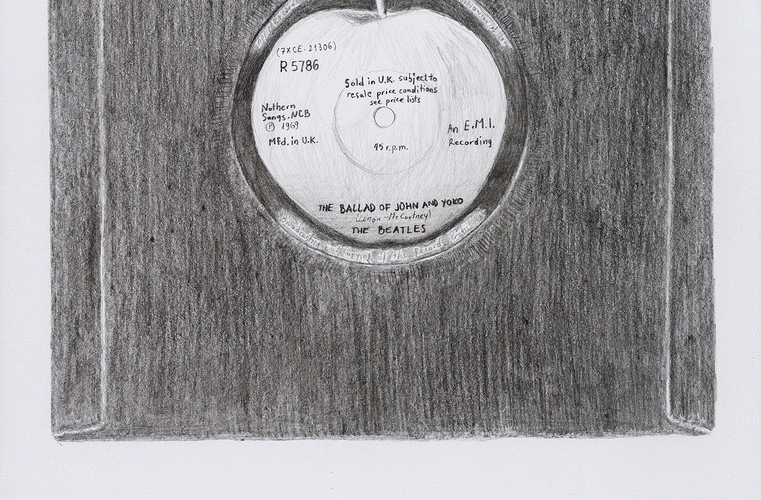 (7XCE.21306)
R 5786
Sold in U.K. subject to
resale price conditions
see price lists
Nothern
Songs.NCB
℗ 1969
Mfd. in U.K.
An E.M.I.
Recording
45 r.p.m.
THE BALLAD OF JOHN AND YOKO
(Lenon-McCartney)
THE BEATLES